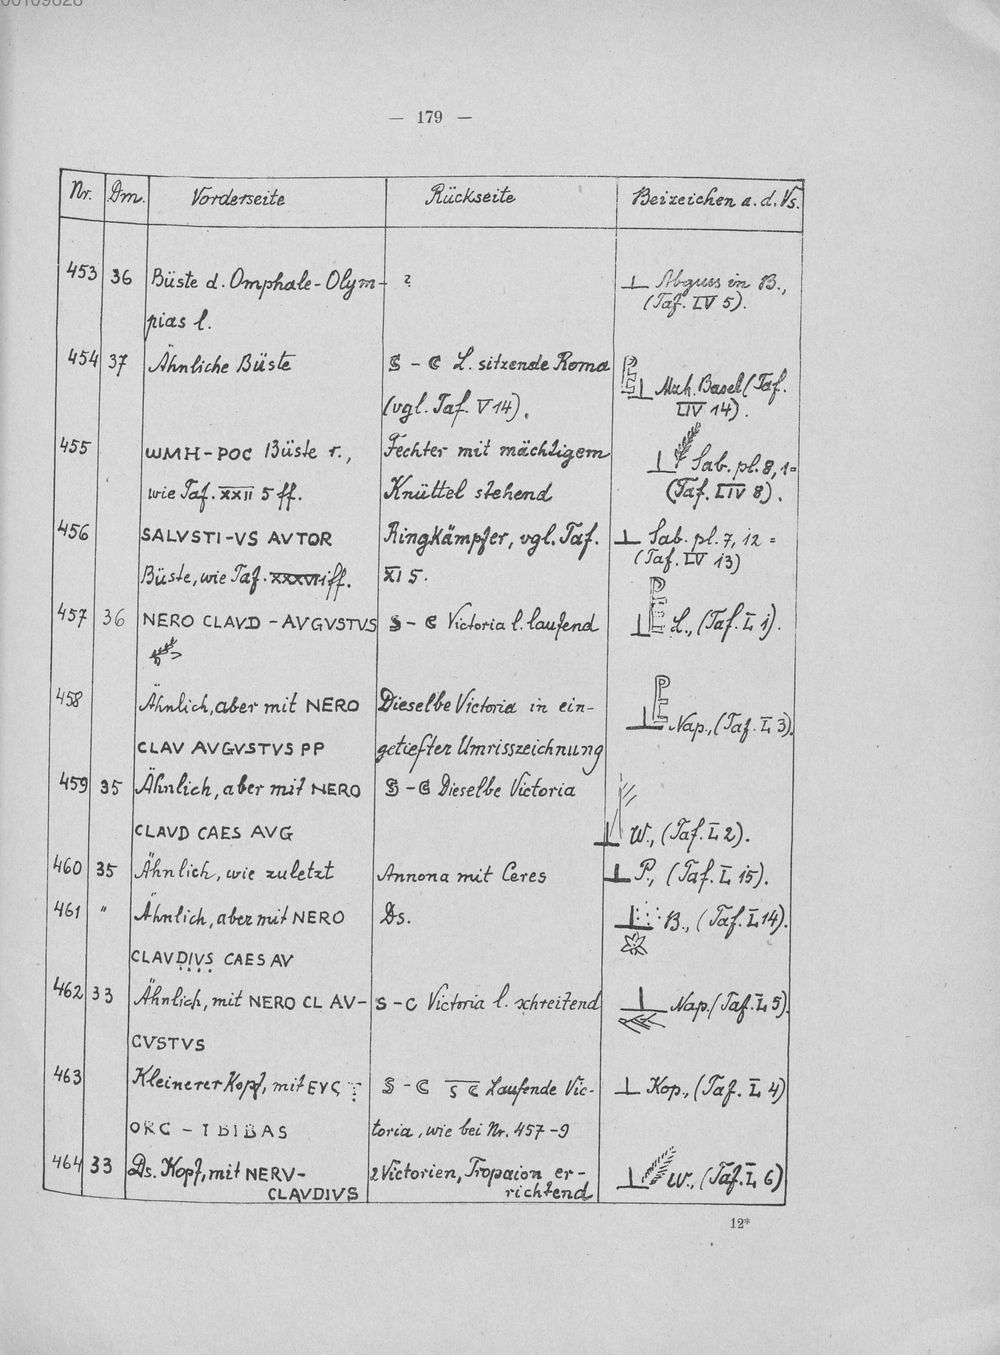 00109628
— 179 —
Nr. Dm. Vorderseite Rückseite Beizeichen a. d. Vs.
453 36 Büste d. Omphale-Olym- ? ⊥ Abguss in B.,
pias l. (Taf. LV 5).
454 37 Ähnliche Büste S - C L. sitzende Roma PE ⊥ Mzh. Basel (Taf.
(vgl. Taf. V 14). LIV 14).
455 WMH-POC Büste r., Fechter mit mächtigem ⊥ Sab. pl. 8, 1=
wie Taf. XXII 5 ff. Knüttel stehend (Taf. LIV 8).
456 SALVSTI-VS AVTOR Ringkämpfer, vgl. Taf. ⊥ Sab. pl. 7, 12 =
Büste, wie Taf. ff. XI 5. (Taf. LV 13)
457 36 NERO CLAVD - AVGVSTVS S - C Victoria l. laufend ⊥ PE L., (Taf. L 1).
458 Ähnlich, aber mit NERO Dieselbe Victoria in ein- ⊥ PE Nap., (Taf. L 3).
CLAV AVGVSTVS PP getiefter Umrisszeichnung
459 35 Ähnlich, aber mit NERO S - C Dieselbe Victoria
CLAVD CAES AVG ⊥ W., (Taf. L 2).
460 35 Ähnlich, wie zuletzt Annona mit Ceres ⊥ P., (Taf. L 15).
461 " Ähnlich, aber mit NERO Ds. ⊥ B., (Taf. L 14).
CLAVDIVS CAES AV
462 33 Ähnlich, mit NERO CL AV- S - C Victoria l. schreitend ⊥ Nap. (Taf. L 5).
GVSTVS
463 Kleinerer Kopf, mit EVG S - C S C Laufende Vic- ⊥ Kop., (Taf. L 4)
toria, wie bei Nr. 457-9
464 33 Ds. Kopf, mit NERV- 2 Victorien, Tropaion er- ⊥ W., (Taf. L 6)
CLAVDIVS richtend
12*